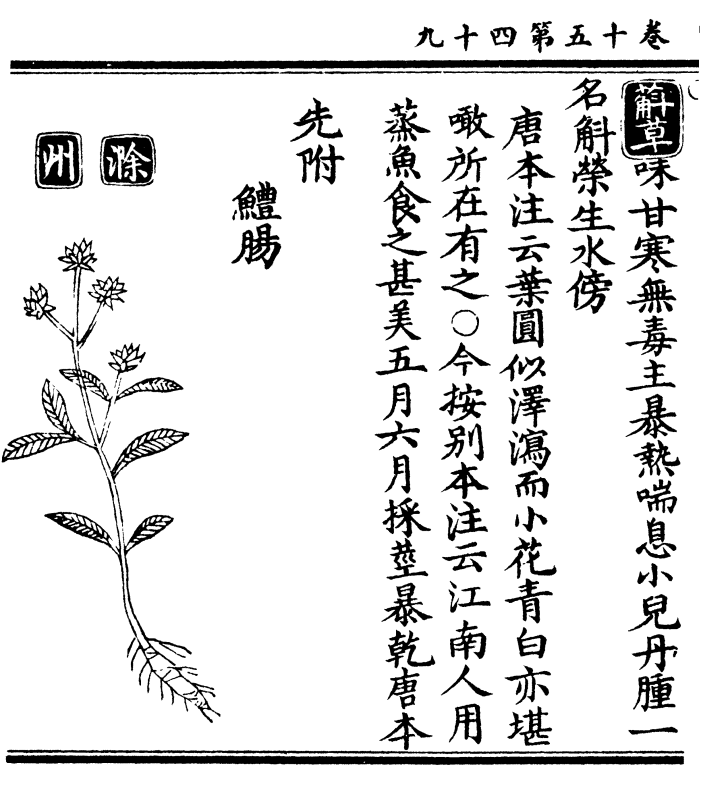 卷十五第四十九
蔛草味甘寒無毒主暴熱喘息小兒丹腫一
名蔛榮生水傍
唐本注云葉圓似澤瀉而小花青白亦堪
噉所在有之○今按別本注云江南人用
蒸魚食之甚美五月六月採莖暴乾唐本
先附
鱧腸
滁州